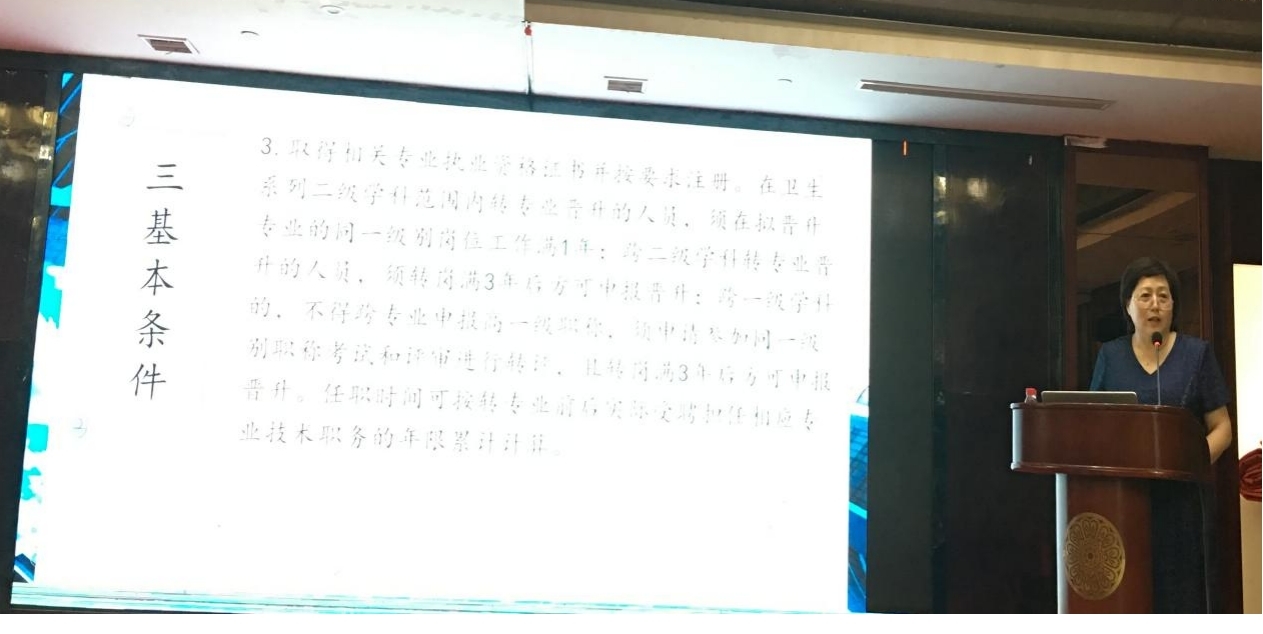 三基本条件
3. 取得相关专业执业资格证书并按要求注册。在卫生
系列二级学科范围内转专业晋升的人员，须在拟晋升
专业的同一级别岗位工作满1年；跨二级学科转专业晋
升的人员，须转岗满3年后方可申报晋升；跨一级学科
的，不得跨专业申报高一级职称，须申请参加同一级
别职称考试和评审进行转评，且转岗满3年后方可申报
晋升。任职时间可按转专业前后实际受聘担任相应专
业技术职务的年限累计计算。